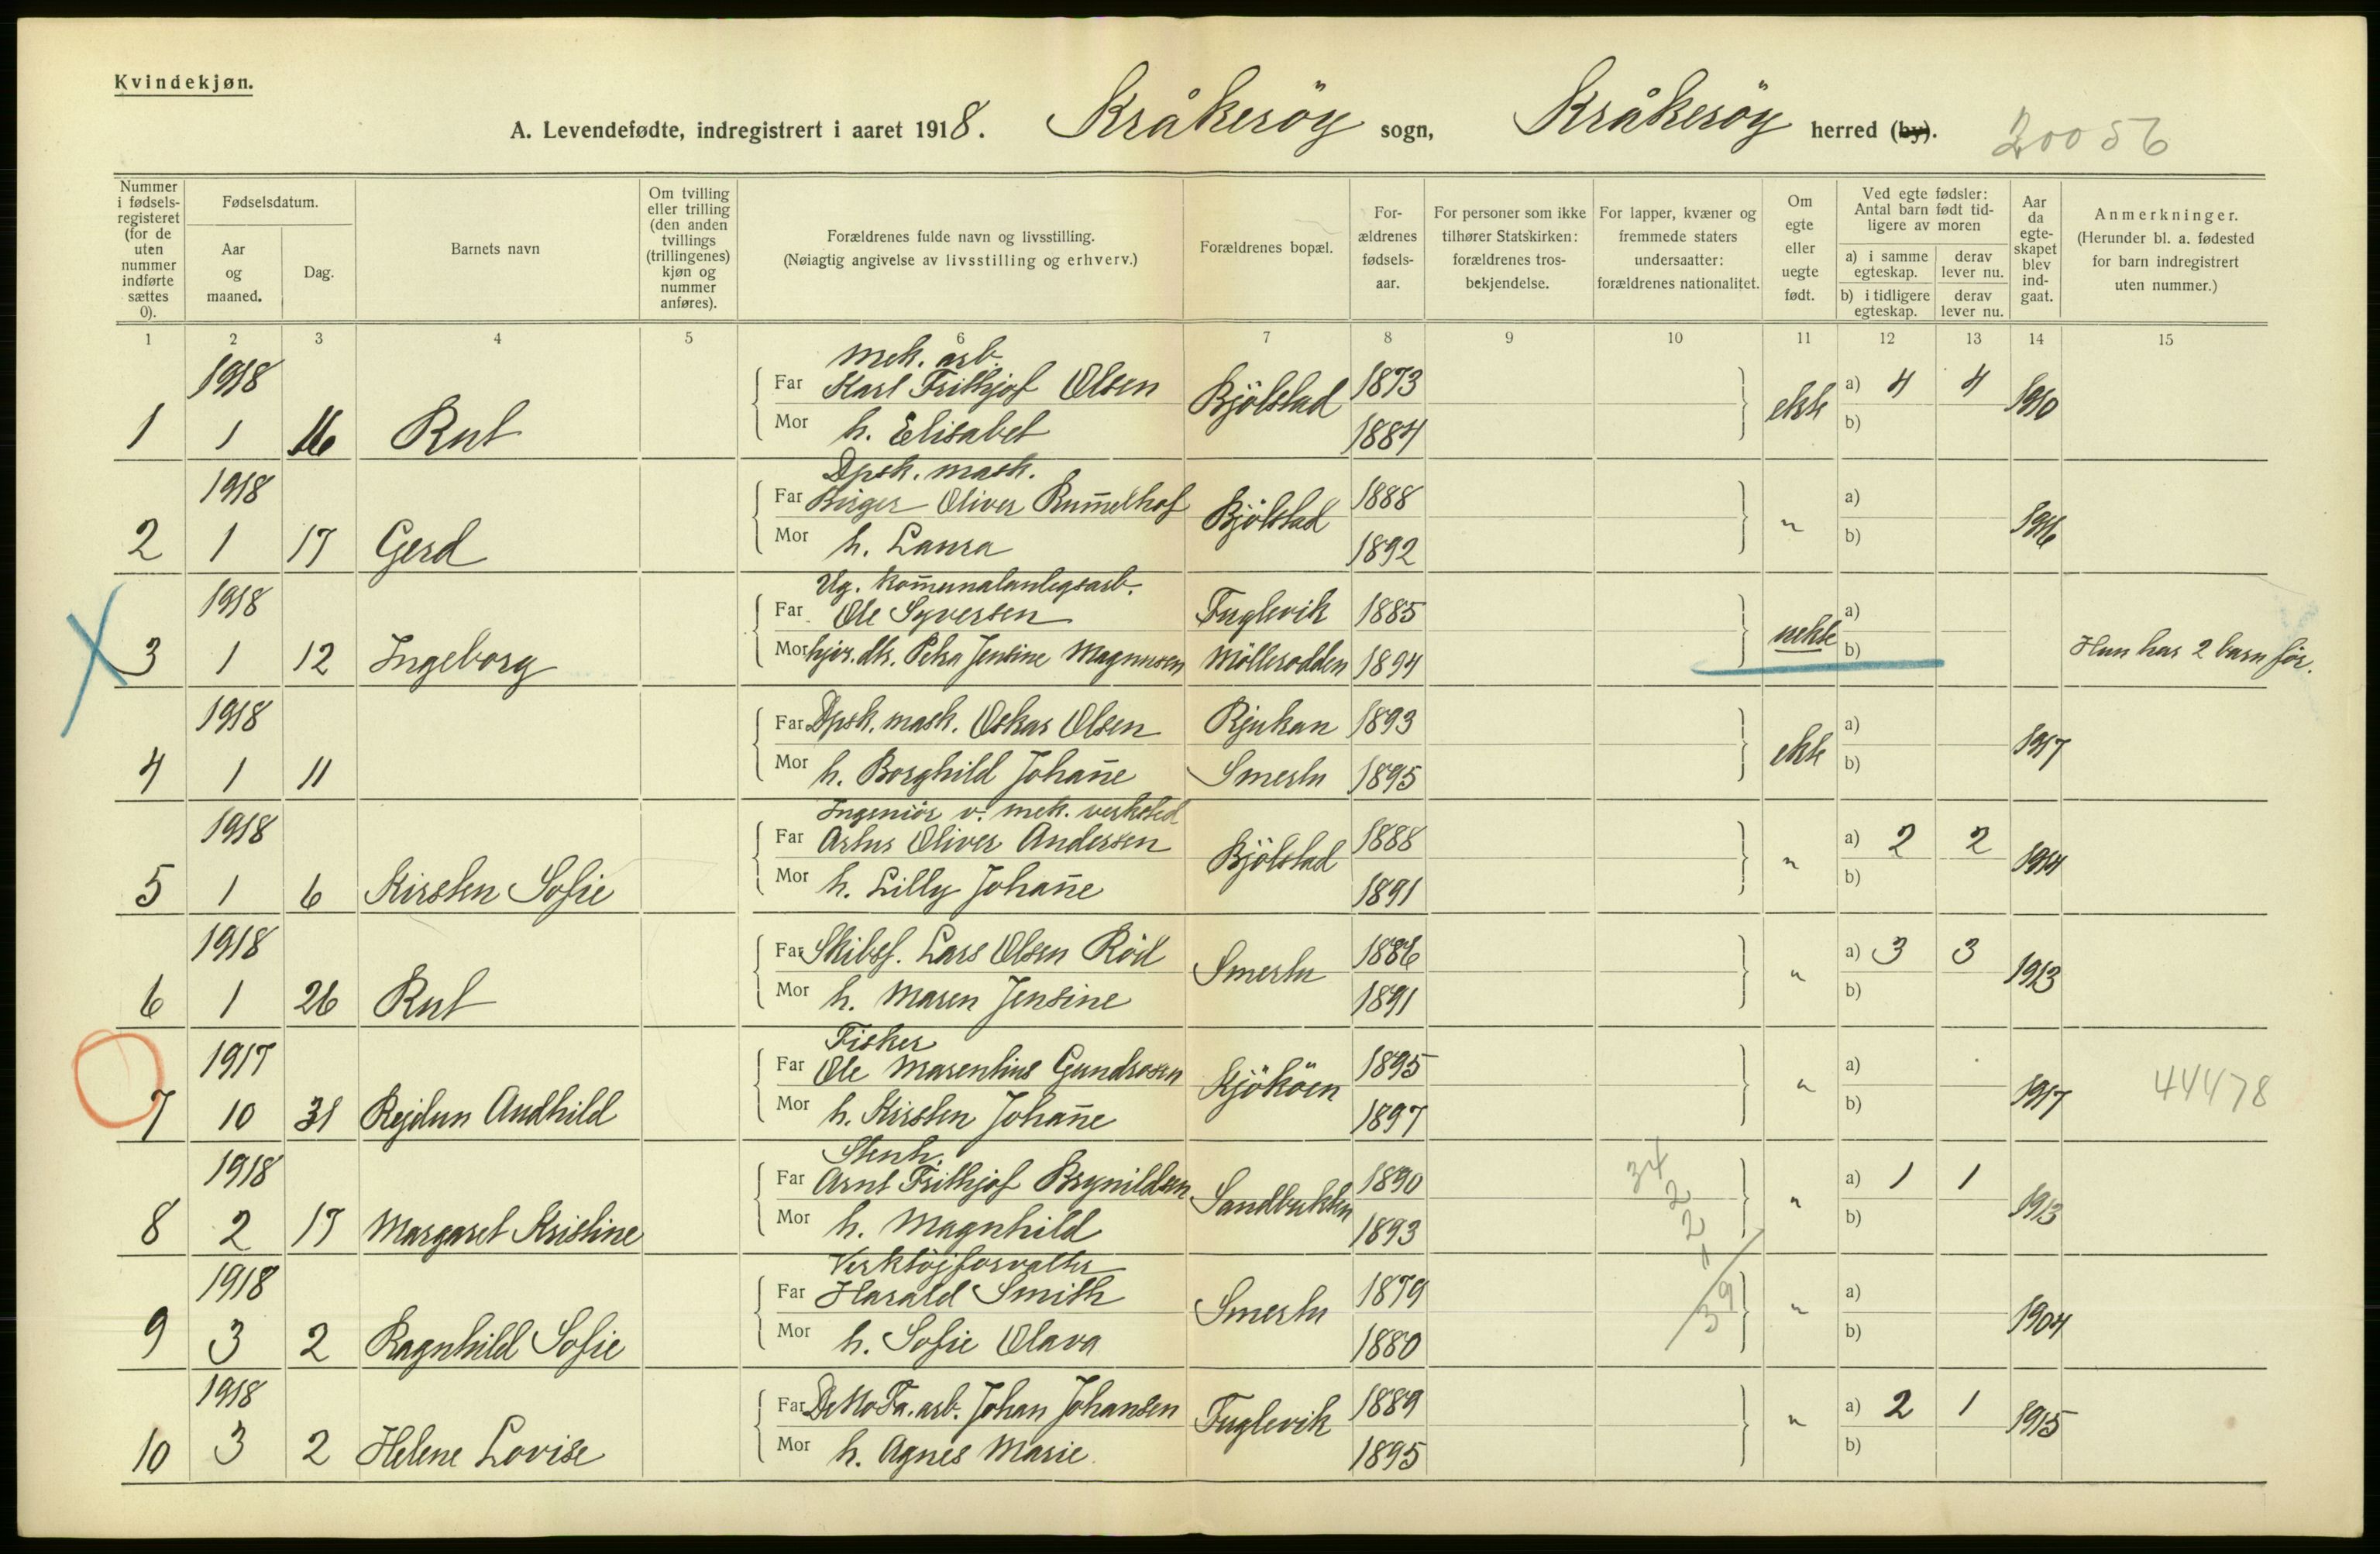 Kvindekjøn.
A. Levendefødte, indregistrert i aaret 1918. Kråkeröy sogn, Kråkeröy herred (by). 20056
Nummer i fødselsregisteret (for de uten nummer indførte sættes 0).
Fødselsdatum.
Aar og maaned.
Dag.
Barnets navn
Om tvilling eller trilling (den anden tvillings (trillingenes) kjøn og nummer anføres).
Forældrenes fulde navn og livsstilling.
(Nøiagtig angivelse av livsstilling og erhverv.)
Forældrenes bopæl.
Forældrenes fødselsaar.
For personer som ikke tilhører Statskirken: forældrenes trosbekjendelse.
For lapper, kvæner og fremmede staters undersaatter: forældrenes nationalitet.
Om egte eller uegte født.
Ved egte fødsler: Antal barn født tidligere av moren
a) i samme egteskap.
derav lever nu.
b) i tidligere egteskap.
derav lever nu.
Aar da egteskapet blev indgaat.
Anmerkninger.
(Herunder bl. a. fødested for barn indregistrert uten nummer.)
1 2 3 4 5 6 7 8 9 10 11 12 13 14 15
1918 Mek. arb.
Far Karl Frithjof Olsen Bjölstad 1873 ekte a) 4 4 1910
1 1 16 Rut Mor h. Elisabet 1884 b)
1918 Dpsk. mask.
Far Birger Oliver Rum̄elhof Bjölstad 1888 " a) 1916
2 1 17 Gerd Mor h. Laura 1892 b)
1918 Ug. Kom̄unalanlegsarb.
Far Ole Syversen Fuglevik 1885 uekte a)
3 1 12 Ingeborg Mor hjv. dtr. Petra Jensine Magnusen Möllerodden 1894 b) Hun har 2 barn för.
1918 Far Dpsk. mask. Oskar Olsen Rjukan 1893 ekte a) 1917
4 1 11 Mor h. Borghild Johan̄e Smertu 1895 b)
1918 Ingeniör v. mek. verksted
Far Artur Oliver Andersen Bjölstad 1888 " a) 2 2 1914
5 1 6 Kirsten Sofie Mor h. Lilly Johan̄e 1891 b)
1918 Far Skibsf. Lars Olsen Röd Smertu 1886 " a) 3 3 1913
6 1 26 Rut Mor h. Maren Jensine 1891 b)
1917 Fisker
Far Ole Marentius Gundrosen Kjököen 1895 " a) 1917 44478
7 10 31 Rejdun Audhild Mor h. Kirsten Johan̄e 1897 b)
1918 Stenh.
Far Arnt Frithjof Brynildsen Sandbukten 1890 34 2 2 1 " a) 1 1 1913
8 2 17 Margaret Kristine Mor h. Magnhild 1893 b)
1918 Verktöjforvalter
Far Harald Smith Smertu 1879 39 " a) 1904
9 3 2 Ragnhild Sofie Mor h. Sofie Olava 1880 b)
1918 Far De No Fa. arb. Johan Johansen Fuglevik 1889 " a) 2 1 1915
10 3 2 Helene Lovise Mor h. Agnes Marie 1895 b)